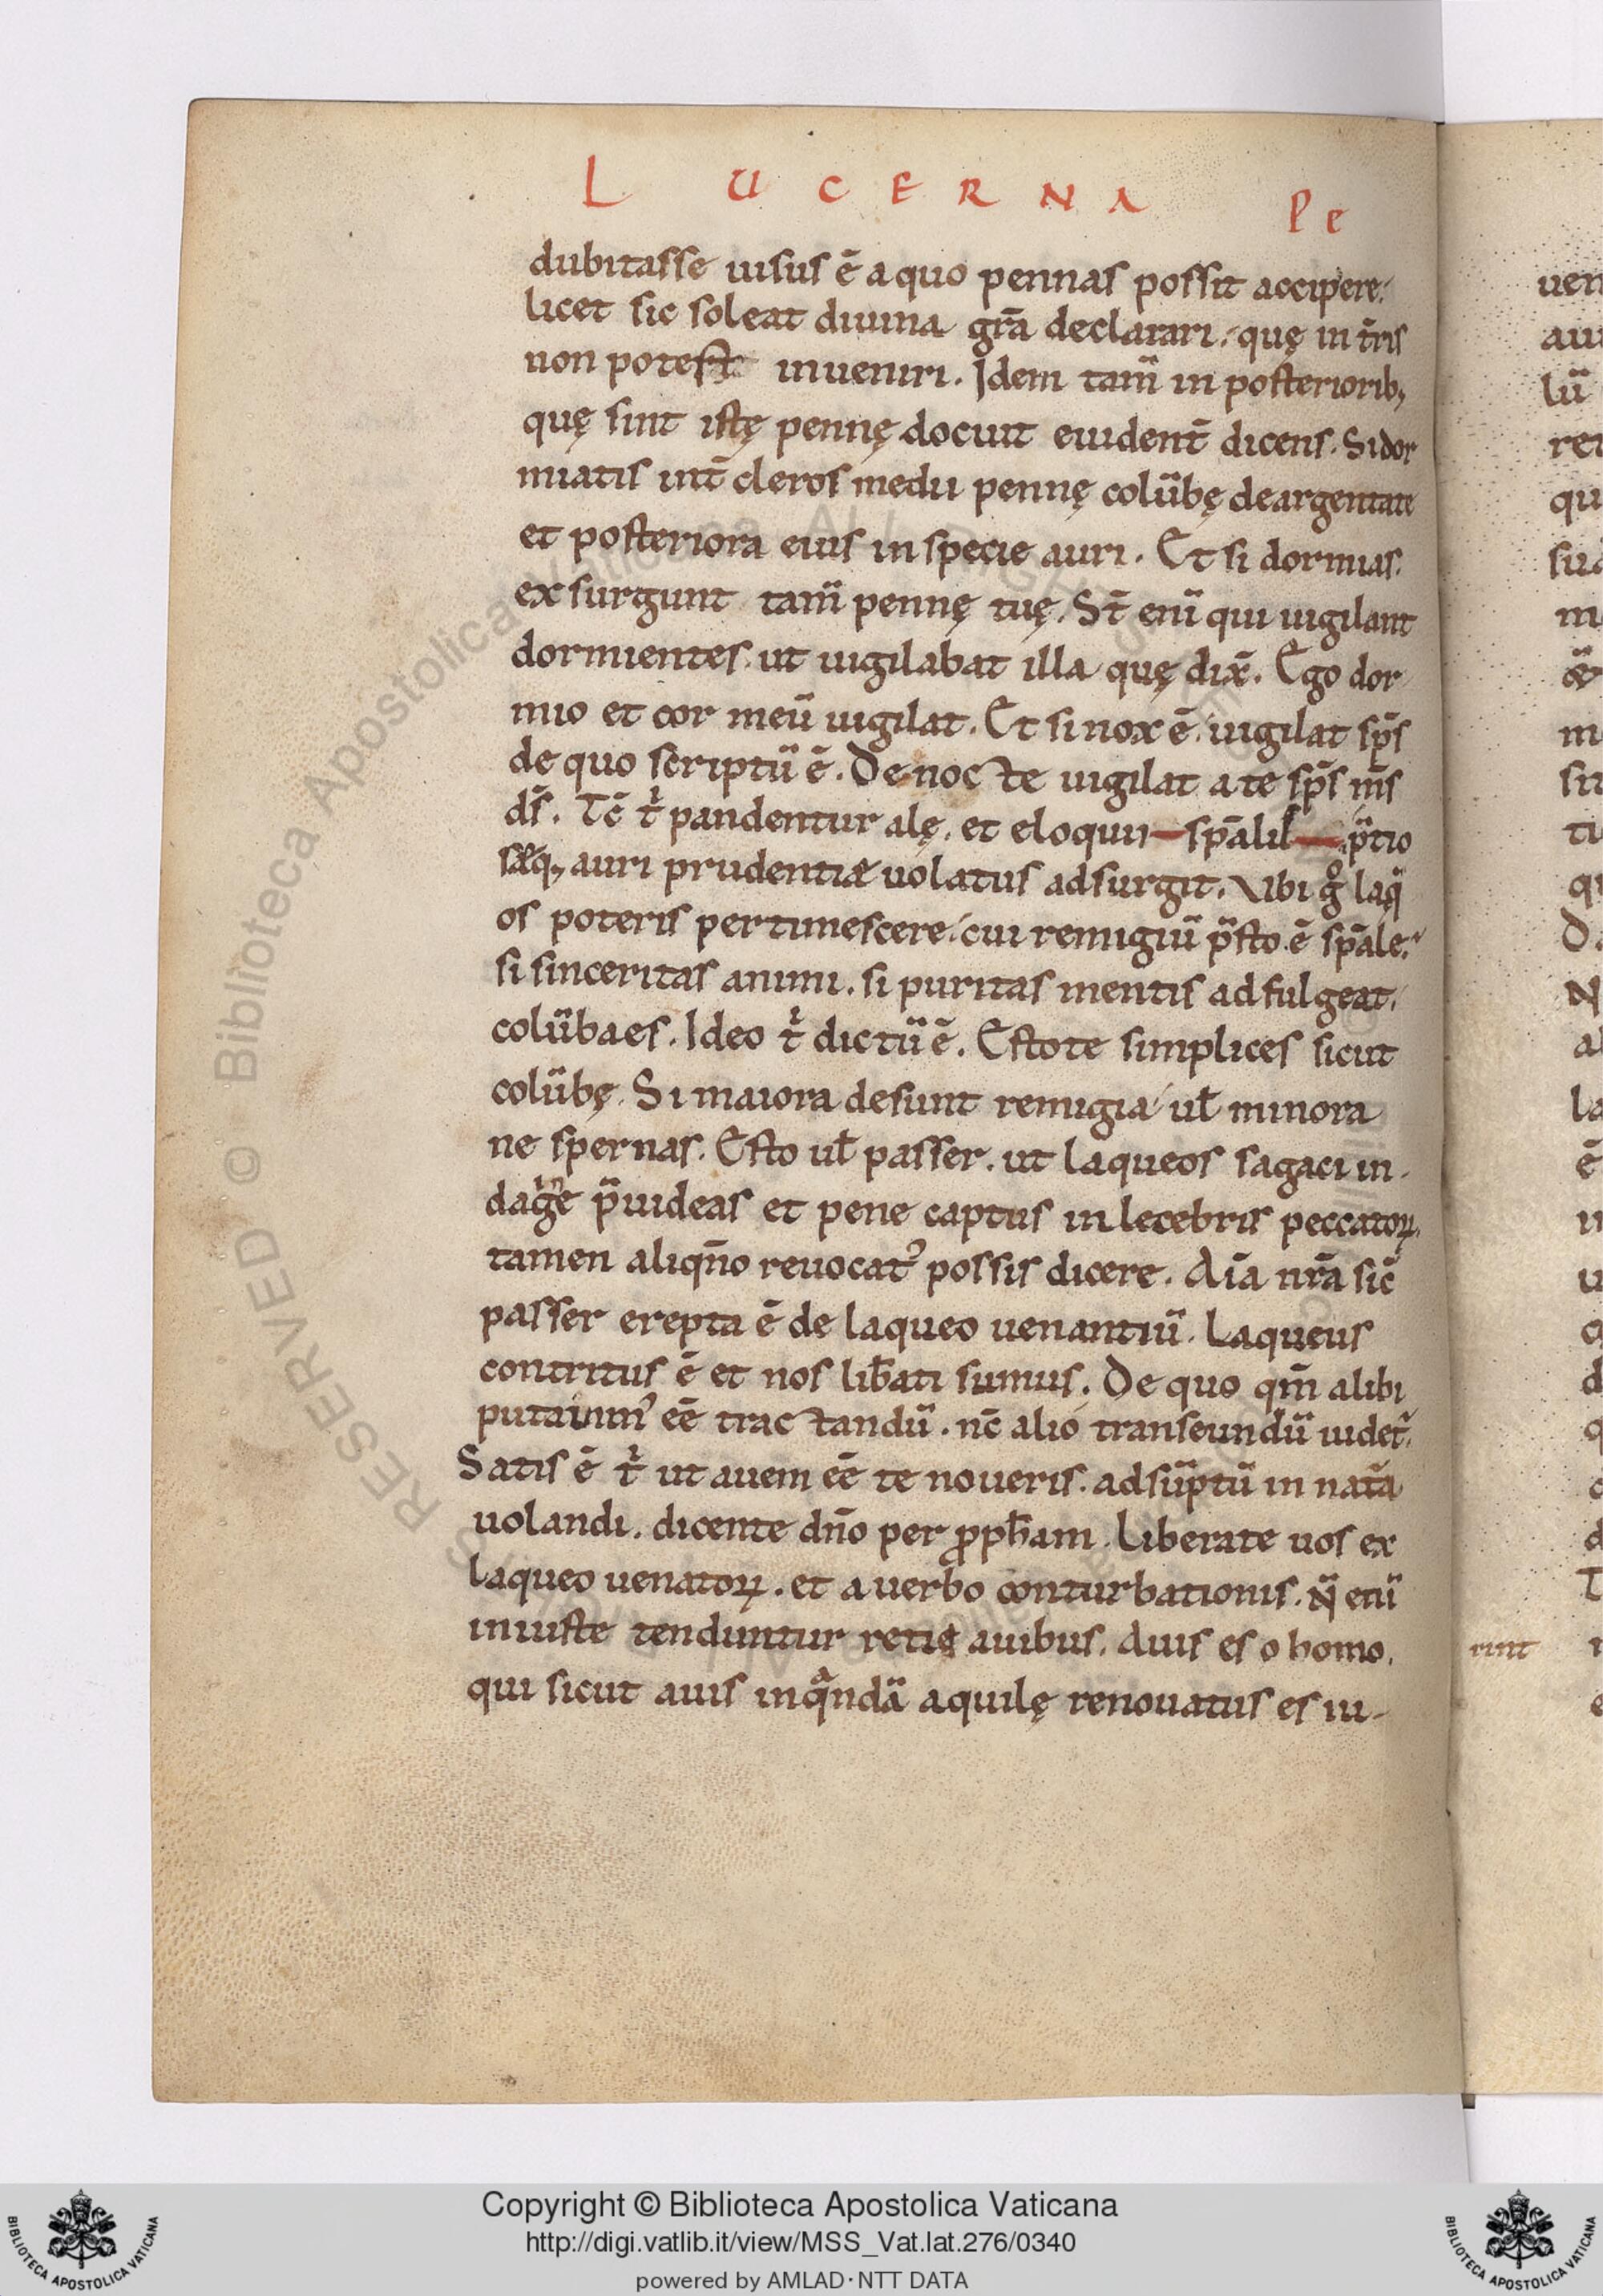 L U C E R N A Pe
dubitasse uisus ē a quo pennas possit accipere.
licet sic soleat diuina gr̄a declarari. quę in t̄ris
non potest inueniri. Idem tam̄ in posteriorib;
quę sint istę pennę docuit euident̄ dicens. Si dor
miatis int̄ cleros medii pennę colūbę deargentate
et posteriora eius in specie auri. Et si dormias.
exsurgunt tam̄ pennę tuę. St̄ enī qui uigilant
dormientes. ut uigilabat illa quę dix̄. Ego dor
mio et cor meū uigilat. Et si nox ē. uigilat sp̄s
de quo scriptū ē. De nocte uigilat a te sp̄s m̄s
ds̄. Tc̄ tͥ pandentur alę. et eloquii sp̄alis p̄tio
auri prudentiæ uolatus adsurgit. Vbi gͦ laq̄
os poteris pertimescere. cui remigiū p̄sto ē sp̄ale.
si sinceritas animi. si puritas mentis adfulgeat.
colūba es. Ideo tͥ dictū ē. Estote simplices sicut
colūbę. Si maiora desunt remigia ul̄ minora
ne spernas. Esto ul̄ passer. ut laqueos sagaci in-
dag̃e p̄uideas et pene captus inlecebris peccatoꝝ.
tamen aliqn̄o reuocat᾽ possis dicere. Aīa nr̄a sic̄
passer erepta ē de laqueo uenantiū. Laqueus
contritus ē et nos lib̄ati sumus. De quo qm̄ alibi
putauim᾽ eē tractandū. nc̄ alio transeundū uidet̄.
Satis ē tͥ ut auem eē te noueris. adsūptū in nat̄a
uolandi. dicente dn̄o per ꝓph̄am. Liberate uos ex
laqueo uenatoꝝ. et a uerbo conturbationis. N̄ enī
iniuste tenduntur retia auibus. Auis es o homo.
qui sicut auis inqͣndā aquilę renouatus es iu-
rint